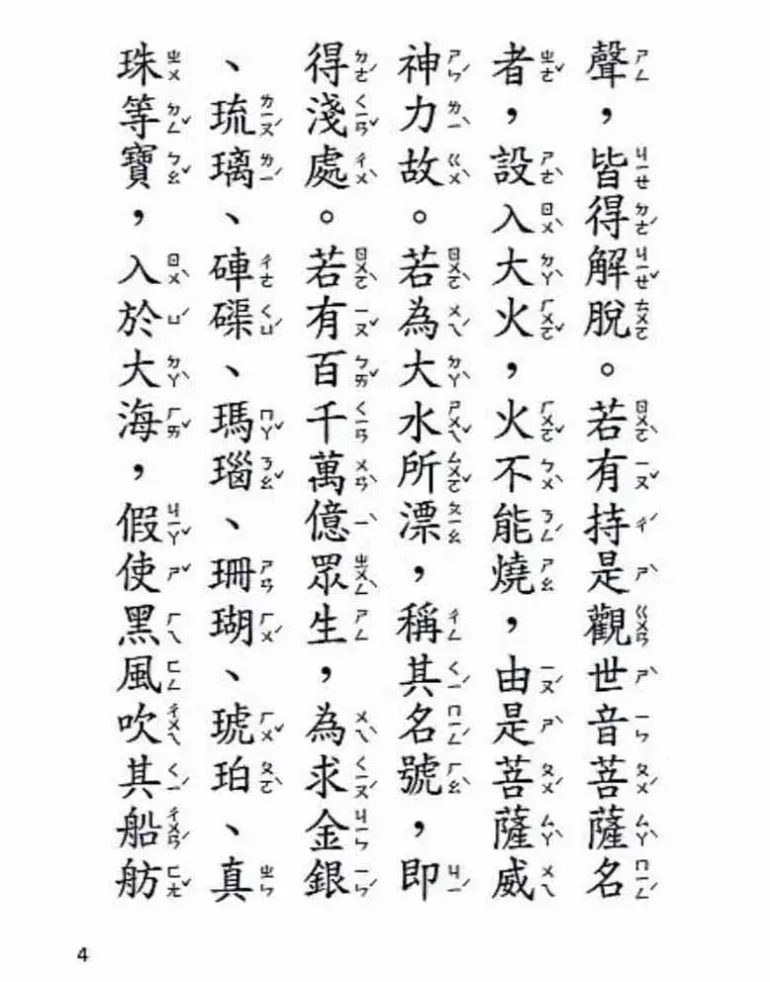 聲，皆得解脫。若有持是觀世音菩薩名
者，設入大火，火不能燒，由是菩薩威
神力故。若為大水所漂，稱其名號，即
得淺處。若有百千萬億眾生，為求金銀
、琉璃、硨磲、瑪瑙、珊瑚、琥珀、真
珠等寶，入於大海，假使黑風吹其船舫
4